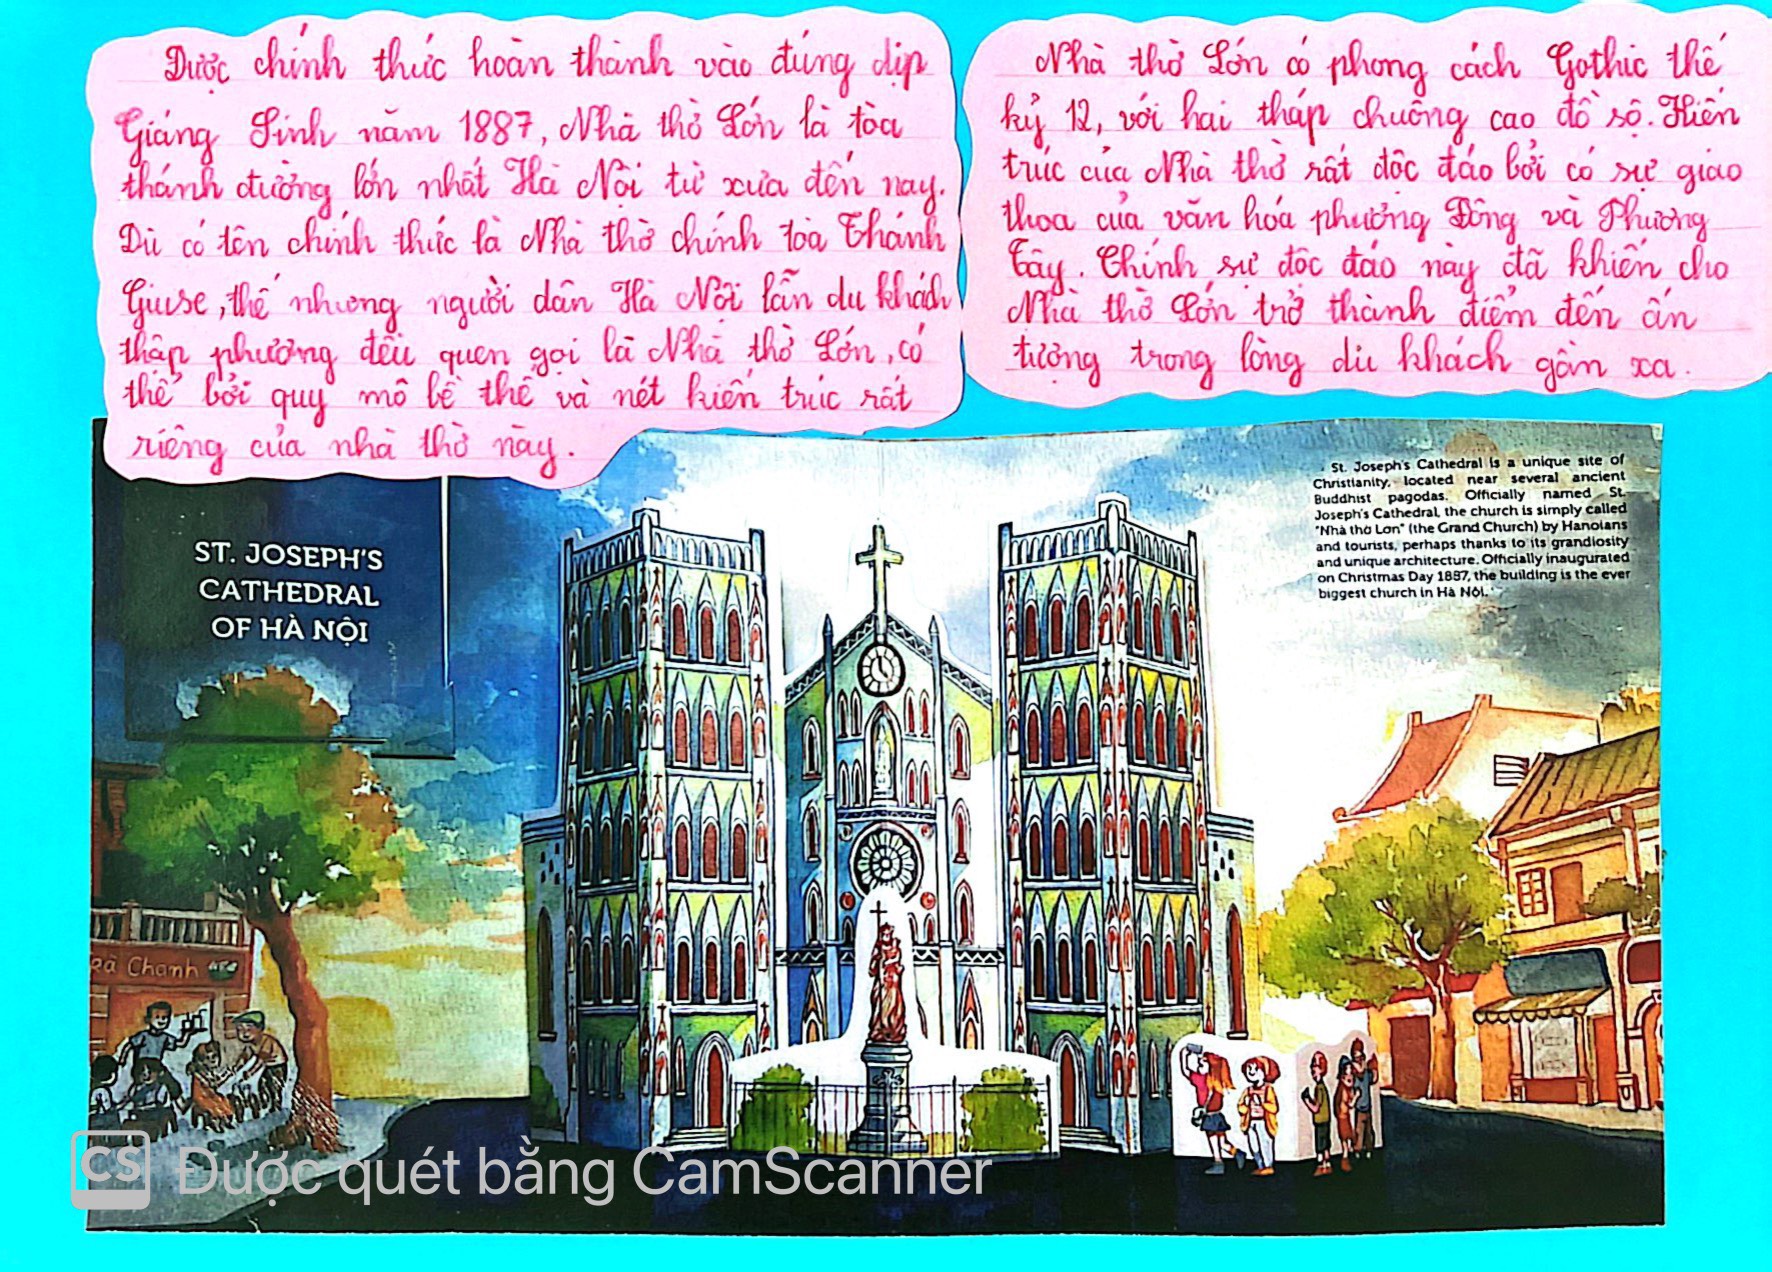 Được chính thức hoàn thành vào đúng dịp
Giáng Sinh năm 1887, Nhà thờ Lớn là tòa
thánh đường lớn nhất Hà Nội từ xưa đến nay.
Dù có tên chính thức là Nhà thờ chính tòa Thánh
Giuse, thế nhưng người dân Hà Nội lẫn du khách
thập phương đều quen gọi là Nhà thờ Lớn, có
thể bởi quy mô bề thế và nét kiến trúc rất
riêng của nhà thờ này.
Nhà thờ Lớn có phong cách Gothic thế
kỷ 12, với hai tháp chuông cao đồ sộ. Kiến
trúc của Nhà thờ rất độc đáo bởi có sự giao
thoa của văn hóa phương Đông và Phương
Tây. Chính sự độc đáo này đã khiến cho
Nhà thờ Lớn trở thành điểm đến ấn
tượng trong lòng du khách gần xa.
ST. JOSEPH'S
CATHEDRAL
OF HÀ NỘI
St. Joseph's Cathedral is a unique site of
Christianity, located near several ancient
Buddhist pagodas. Officially named St.
Joseph's Cathedral, the church is simply called
"Nhà thờ Lớn" (the Grand Church) by Hanoians
and tourists, perhaps thanks to its grandiosity
and unique architecture. Officially inaugurated
on Christmas Day 1887, the building is the ever
biggest church in Hà Nội.
Chanh
CS Được quét bằng CamScanner